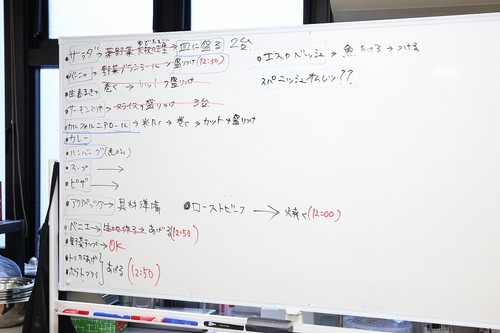 ・サラダ→葉野菜 → 皿に盛る 2台
・バーニャ→野菜ブランシール→盛りつけ (12:50)
・生春まき→巻く→カット→盛りつけ
・サーモンマリネ→スライス→盛りつけ 3台
・カルフォルニアロール→米たく→巻く→カット→盛りつけ
・カレー
・ハンバーグ
・スープ →
・ピザ →
・アクアパッツァ→具材準備
・ベニエ→生地作る→あげる(12:50)
・野菜チップ→OK
・トリカラあげ
・ポテトフライ
あげる (12:50)
・エスカベッシュ→魚あげる→つける
スパニッシュオムレツ??
●ローストビーフ → 焼く(12:00)